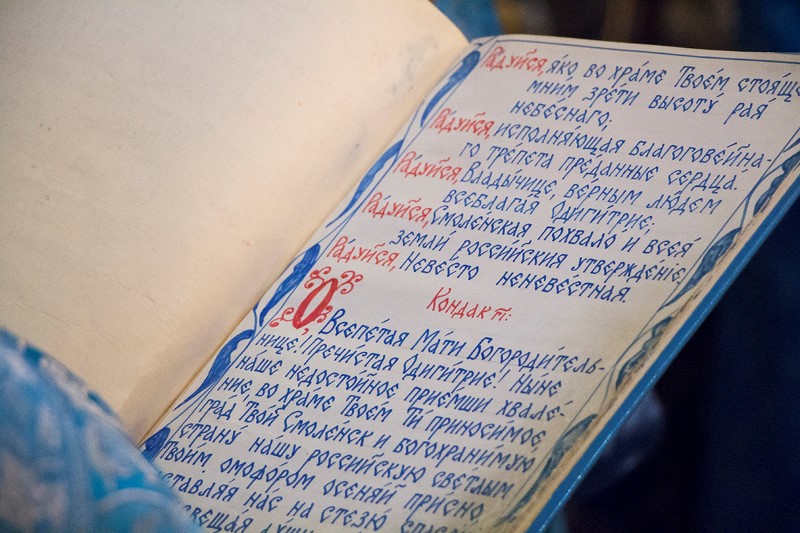 Ра́дуйся, я́ко во хра́ме Твое́м стоя́ще
мни́м зре́ти высоту́ рая́
небе́снаго;
Ра́дуйся, исполня́ющая благогове́йна-
го тре́пета пре́данные сердца.
Ра́дуйся, Влады́чице, ве́рным лю́дем
всеблага́я Одиги́трие;
Ра́дуйся, Смоле́нская похвало́ и всея́
земли́ росси́йския утвержде́ние;
Ра́дуйся, Неве́сто неневе́стная.
Кондак п҃:
О, Всепе́тая Ма́ти Богороди́тель-
нице! Пречи́стая Одиги́трие! Ны́не
на́ше недосто́йное прие́мши хвале́-
ние, во хра́ме Твое́м Ти́ приноси́мое
град Тво́й Смоле́нск и богохрани́мую
страну́ на́шу росси́йскую све́тлым
Твои́м омофо́ром осеня́й при́сно,
нас на стезю́